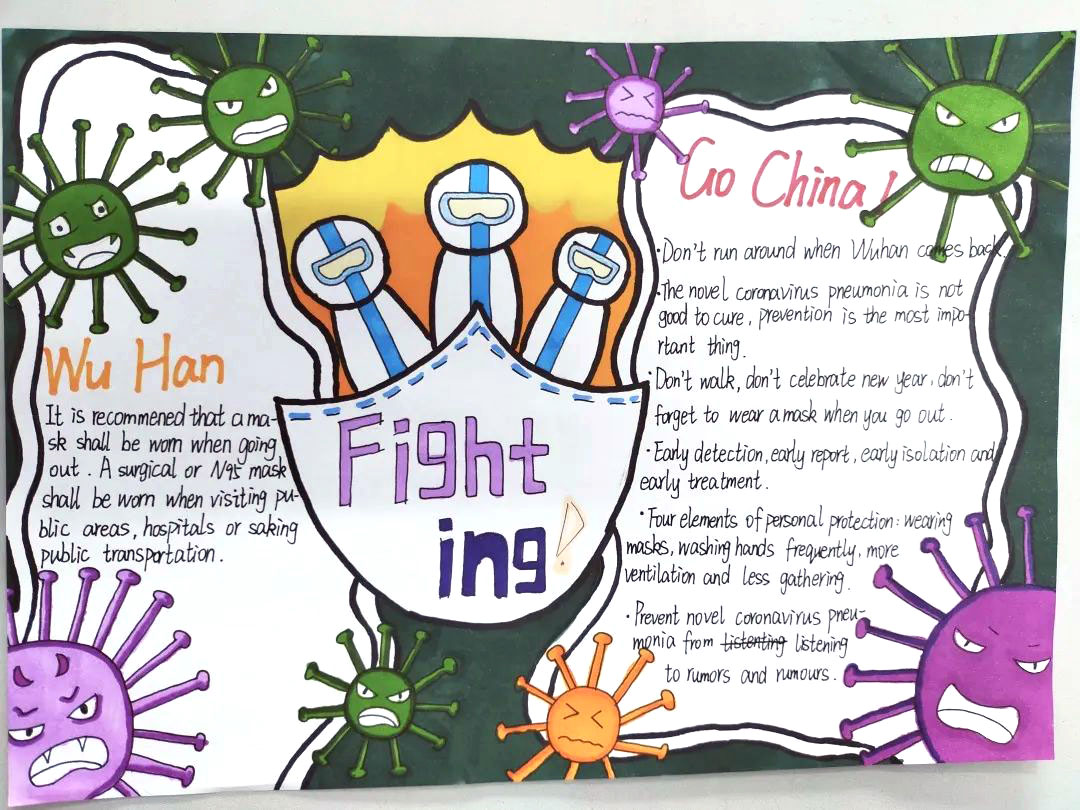 Wu Han
It is recommened that a ma-
sk shall be worn when going
out. A surgical or N95 mask
shall be worn when visiting pu-
blic areas, hospitals or saking
public transportation.
Fight
ing!
Go China!
·Don't run around when Wuhan comes back.
·The novel coronavirus pneumonia is not
good to cure, prevention is the most impo-
rtant thing.
·Don't walk, don't celebrate new year, don't
forget to wear a mask when you go out.
·Early detection, early report, early isolation and
early treatment.
·Four elements of personal protection: wearing
masks, washing hands frequently, more
ventilation and less gathering.
·Prevent novel coronavirus pneu-
monia from listenting listening
to rumors and rumours.